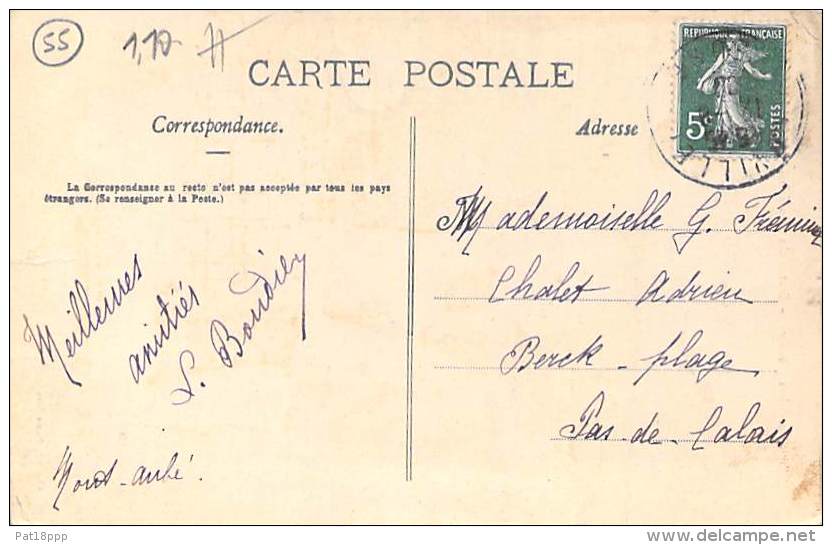 55
1,10
CARTE POSTALE
RÉPUBLIQUE FRANÇAISE
5c
POSTES
Correspondance.
Adresse
La Correspondance au recto n'est pas acceptée par tous les pays
étrangers. (Se renseigner à la Poste.)
Meilleures
amitiés
Mademoiselle G.
Chalet Adrien
Berck-plage
Pas-de-Calais
Pat18ppp
delcampe.net